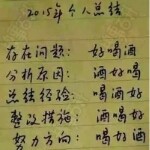 2015年个人总结
存在问题：好喝酒
分析原因：酒好喝
总结经验：喝好酒
整改措施：酒喝好
努力方向：喝酒好